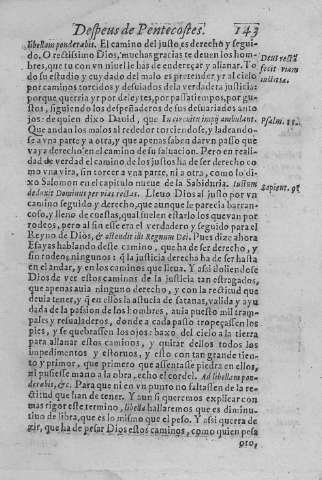 Despues de Pentecostes. 143
libellam ponderabis. El camino del justo, es derecho y segui-
do. O rectissimo Dios, muchas gracias te deuen los hom-
bres, que tu con vn niuel le has de endereçar y alianar. To
do su estudio y cuydado del malo es pretender yr al cielo
por caminos torcidos y desuiados de la verdadera justicia:
porque querria yr por deleytes, por passatiempos, por gu-
stos, siguiendo los despeñaderos de sus desuariados anto
jos: de quien dixo Dauid, que In circuitu impij ambulant.
Que andan los malos al rededor torciendose, y ladeando-
se a vna parte y a otra, que apenas saben dar vn passo que
vaya derecho en el camino de su saluacion. Pero en reali-
dad de verdad el camino de los justos ha de ser derecho co
mo vna vira, sin torcer a vna parte, ni a otra, como lo di-
xo Salomon en el capitulo nueue de la Sabiduria. Iustum
deduxit Dominus per vias rectas. Lleuo Dios al justo por vn
camino seguido y derecho, que aunque le parecia barran-
coso, y lleno de cuestas, qual suelen estarlo los que van por
rodeos, pero al fin esse era el verdadero y seguido para el
Reyno de Dios, & ostendit illi Regnum Dei. Pues dize ahora
Esayas hablando desse camino, que ha de ser derecho, y
sin rodeos ningunos: q̃ la justicia derecha ha de ser hasta
en el andar, y en los caminos que lleua. Y assi doliendose
Dios de ver estos caminos de la justicia tan estragados,
que apenas auia ninguno derecho, y con la rectitud que
deuia tener, y q̃ en ellos la astucia de satanas, valida y ayu
dada de la passion de los hombres, auia puesto mil tram-
pales y resualaderos, donde a cada passo tropeçassen los
pies, y se quebrassen los ojos: baxo del cielo a la tierra
para allanar estos caminos, y quitar dellos todos los
impedimentos y estoruos, y esto con tan grande tien-
to y primor, que primero que assentasse piedra en ellos,
ni pusiesse mano a la obra, echo el cordel. Ad libellam pon
derabis, &c. Para que ni en vn punto no faltassen de la re-
ctitud que han de tener. Y aun si queremos explicar con
mas rigor este termino, libella hallaremos que es diminu-
tiuo de libra, que es lo mismo que el peso. Y assi querra de
zir, que ha de pesar Dios estos caminos, como quien pesa
oro,
Deus rectã
fecit viam
iustitia.
Psalm. 11.
Sapient. 9.